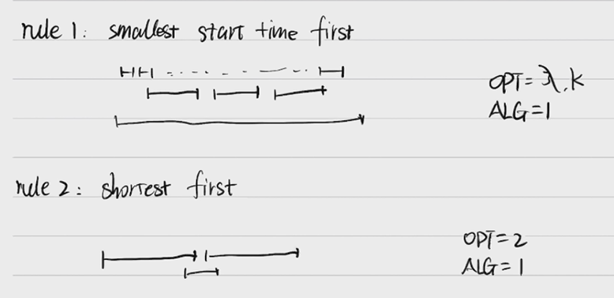 rule 1: smallest start time first
OPT = λ.k
ALG = 1
rule 2: shortest first
OPT = 2
ALG = 1